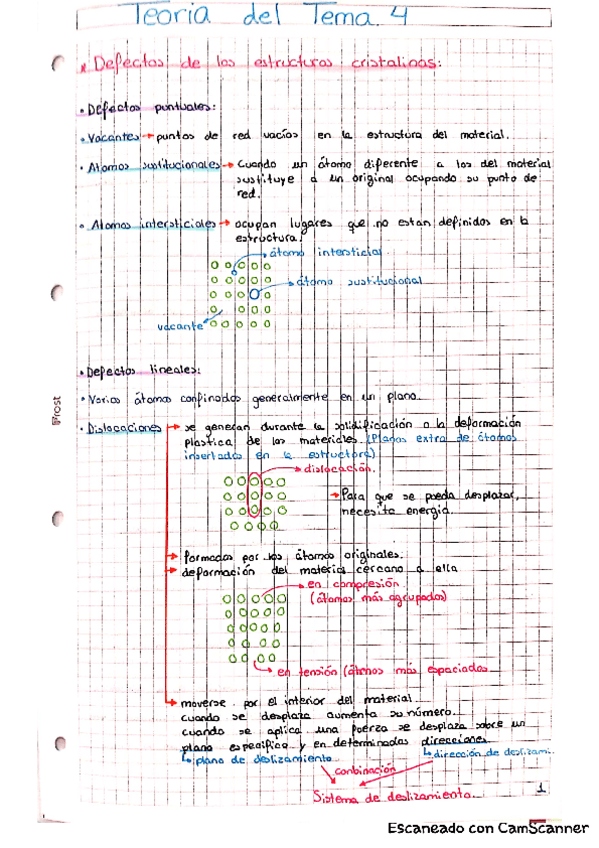 Teoría del Tema 4
* Defectos de las estructuras cristalinas:
• Defectos puntuales:
• Vacantes → puntos de red vacíos en la estructura del material.
• Atomos sustitucionales → Cuando un átomo diferente a los del material
sustituye a un original ocupando su punto de
red.
• Atomos intersticiales → ocupan lugares que no estan definidos en la
estructura.
átomo intersticial
átomo sustitucional
vacante
• Defectos lineales:
• Varios átomos confinados generalmente en un plano.
• Dislocaciones → se generan durante la solidificación o la deformación
plastica de los materiales. (Planos extra de átomos
insertados en la estructura)
dislocación.
→ Para que se pueda desplazar,
necesita energía.
→ formadas por los átomos originales.
→ deformación del material cercano a ella
en compresión
(átomos más agrupados)
en tensión (átomos más espaciados
→ moverse por el interior del material
cuando se desplaza aumenta su número.
cuando se aplica una fuerza se desplaza sobre un
plano especifico y en determinadas direcciones
↳ plano de deslizamiento
↳ dirección de deslizami.
combinación
Sistema de deslizamiento.
1
Prost
Escaneado con CamScanner